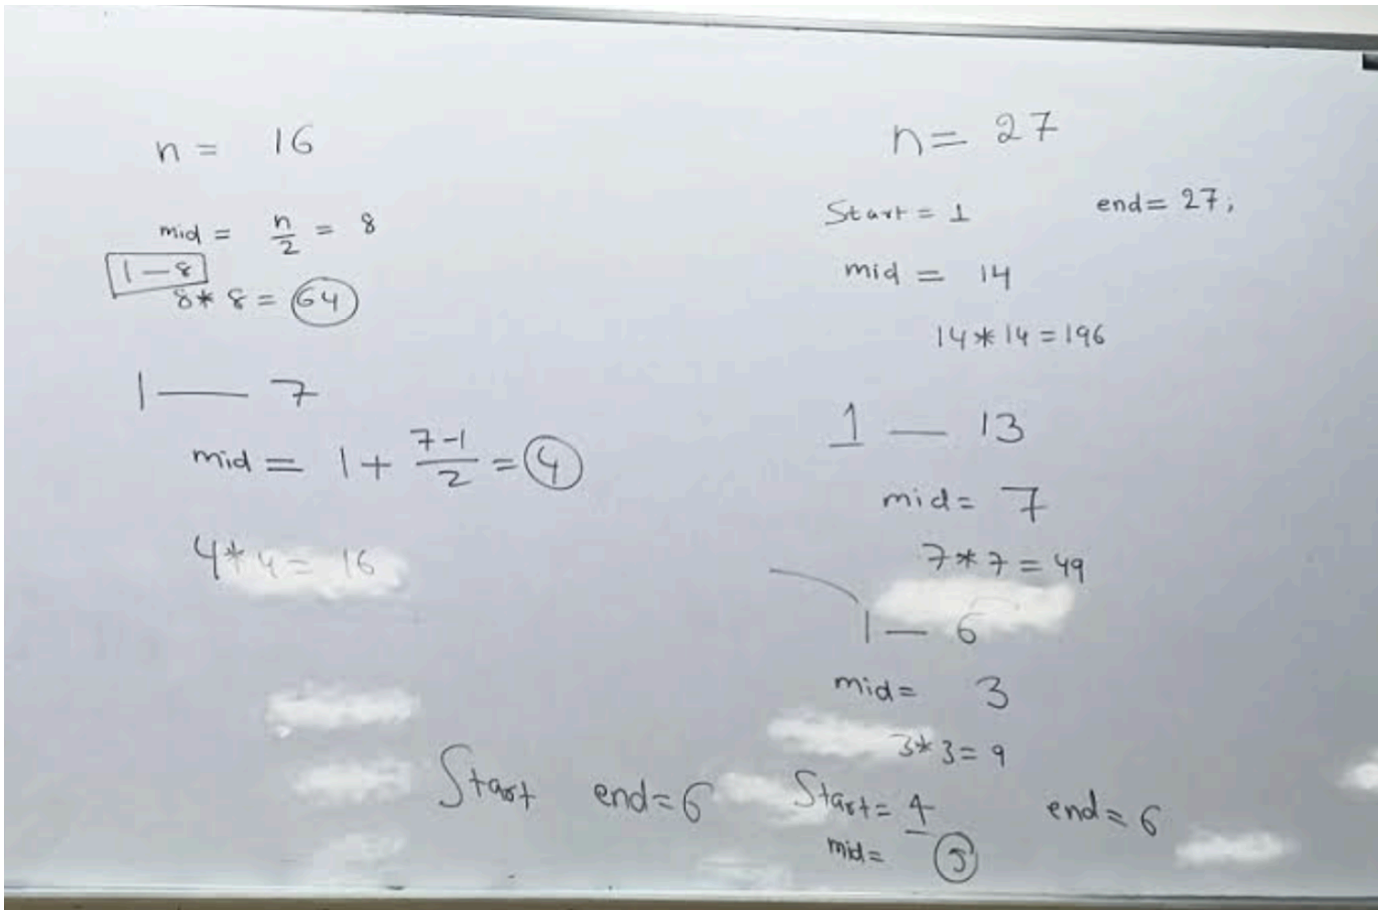 n = 16
mid = n/2 = 8
1 — 8
8 * 8 = 64
1 — 7
mid = 1 + 7-1/2 = 4
4 * 4 = 16
Start end = 6
n = 27
Start = 1 end = 27;
mid = 14
14 * 14 = 196
1 — 13
mid = 7
7 * 7 = 49
1 — 6
mid = 3
3 * 3 = 9
Start = 4 end = 6
mid = 5